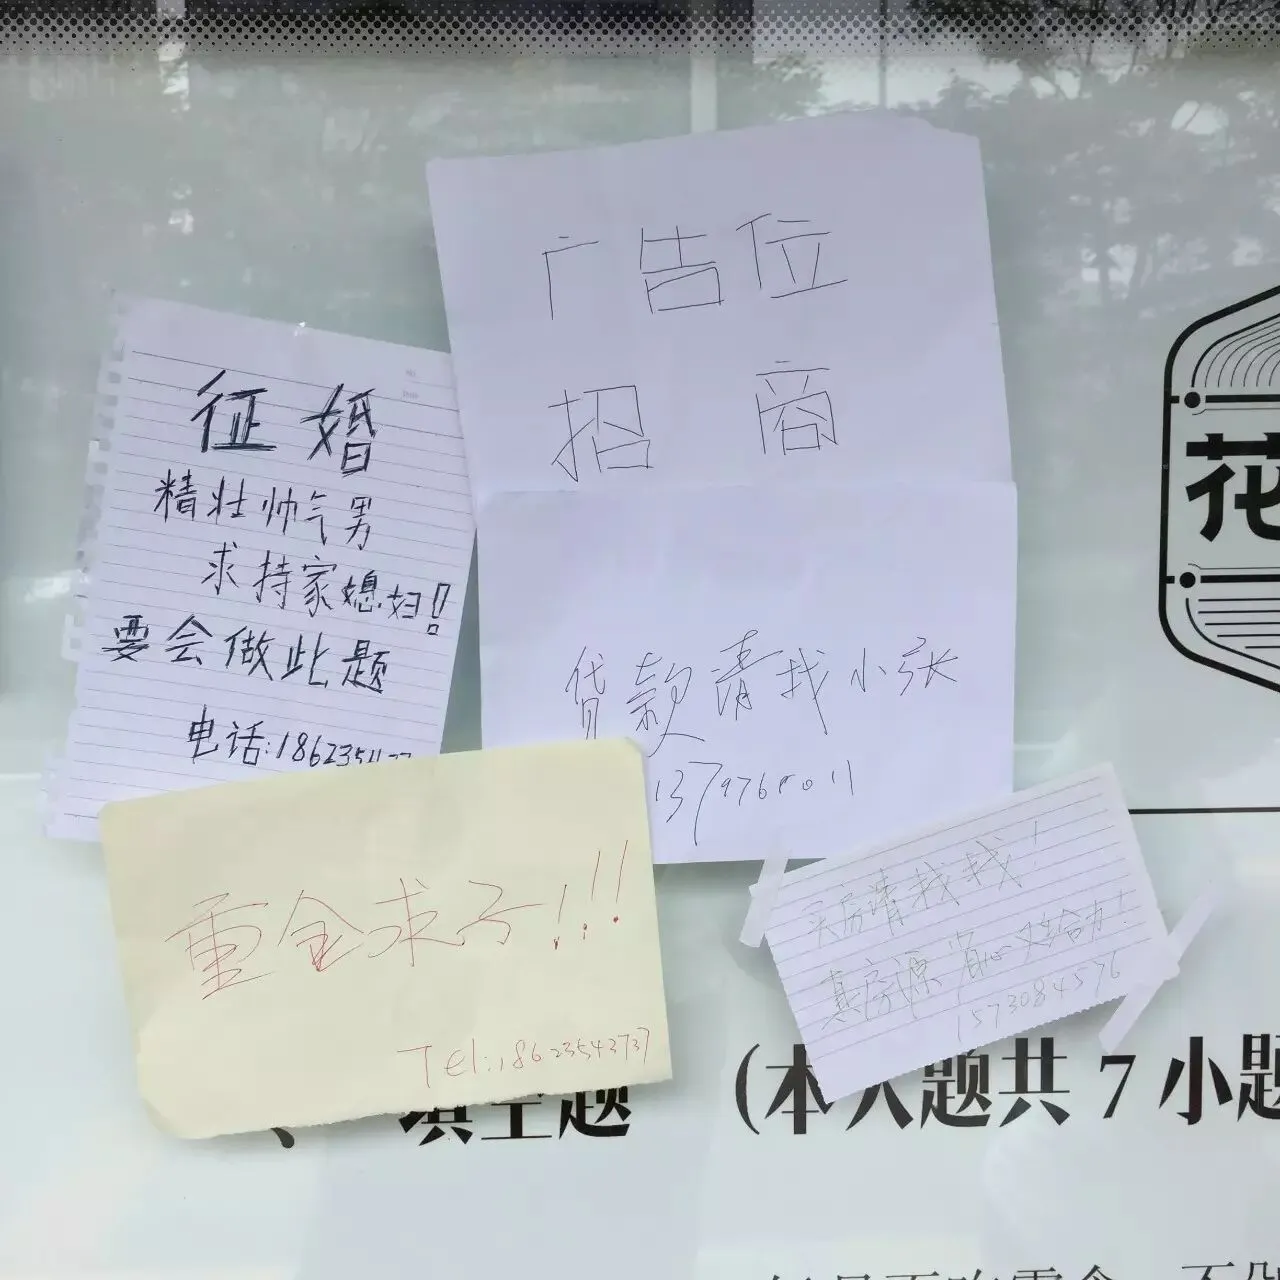 广告位
招商
征婚
精壮帅气男
求持家媳妇!
要会做此题
电话:1862354
贷款请找小张
重金求子!!!
Tel:18623543737
买房请找我!
真房源 省心又给力!
1573084576
花
填空题 (本大题共7小题